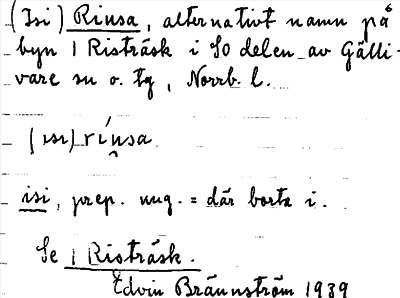 (Isi) Rinsa, alternativt namn på
byn 1 Risträsk i SO delen av Gälli-
vare sn o. tg, Norrb. l.
(ısı) rı́n̯sa
isi, prep. ung. = där borta i.
Se 1 Risträsk.
Edvin Brännström 1939